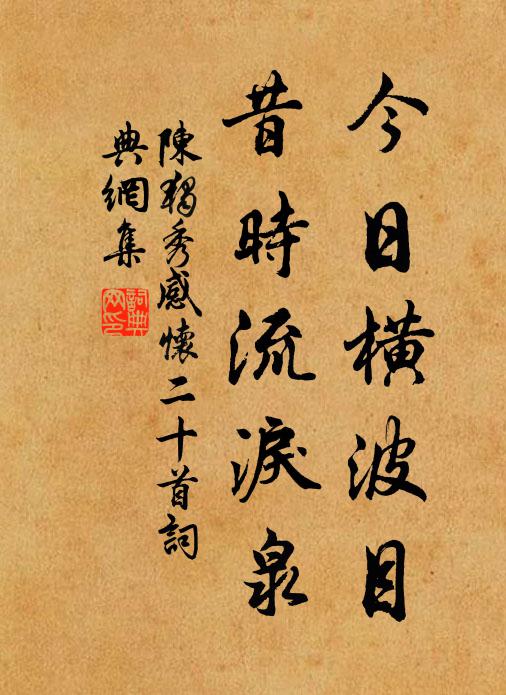 今日橫波目
昔時流淚泉
陳獨秀感懷二十首詞
典網集
詞典网印